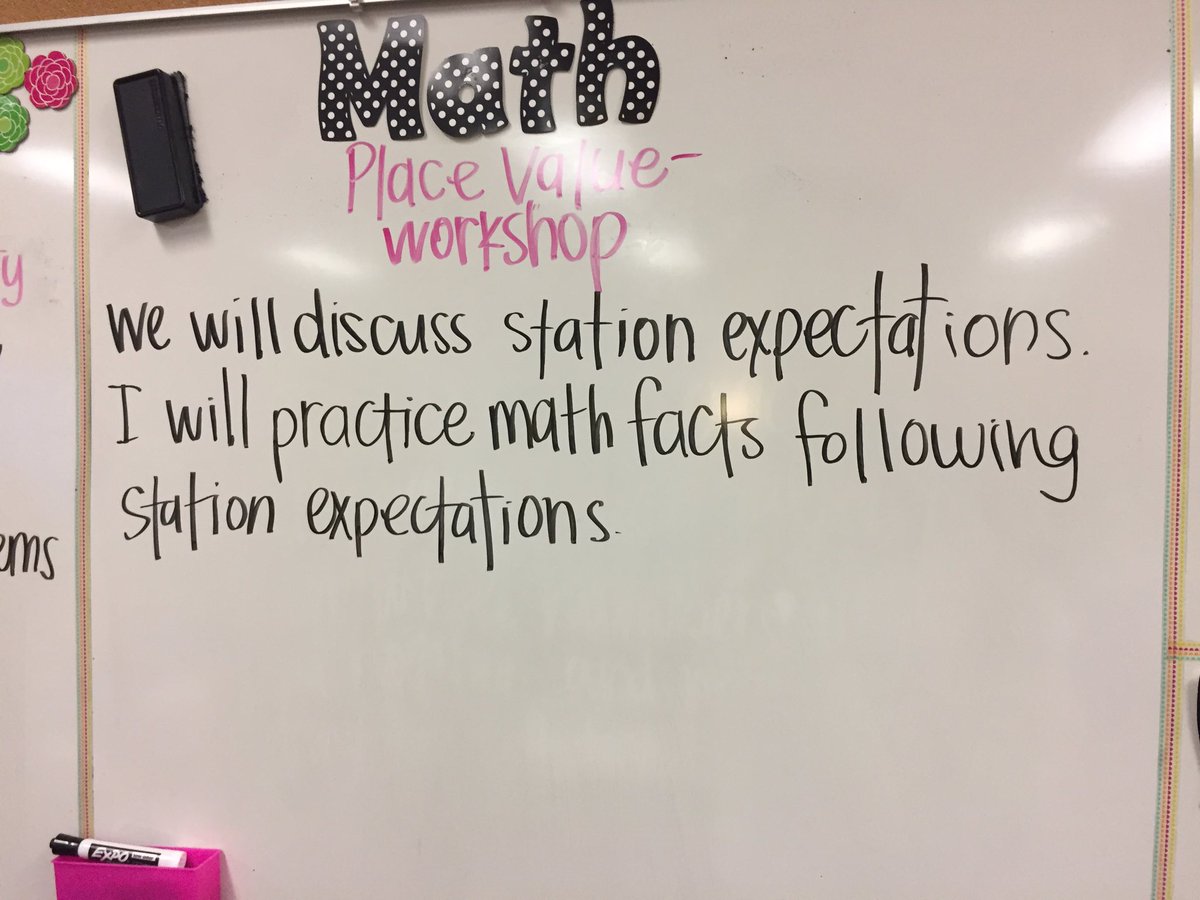 Math
Place Value-
workshop
We will discuss station expectations.
I will practice math facts following
station expectations.
ty
ems
EXPO